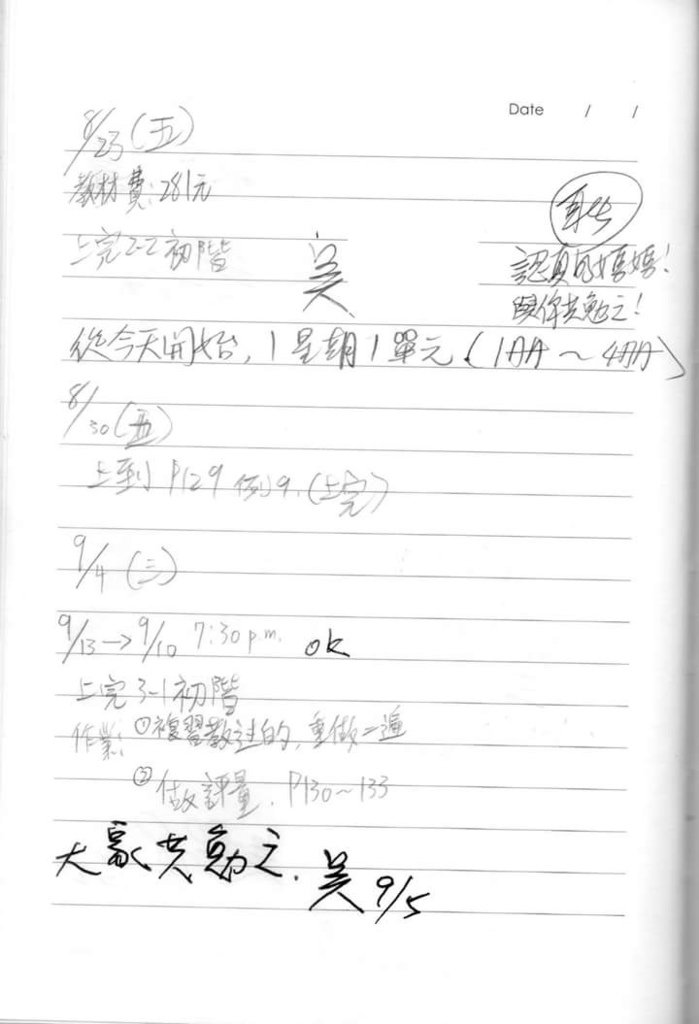 Date / /
8/23 (五)
教材費:281元
上完2-2初階
吳
認真的媽媽!
與你共勉之!
從今天開始,1星期1單元.(1冊~4冊)
8/30(五)
上到P129例9.(上完)
9/4 (三)
9/13→9/10 7:30 p.m. ok
上完3-1初階
作業:①複習教过的,重做一遍
②做評量.P130~133
大家共勉之.吳9/5